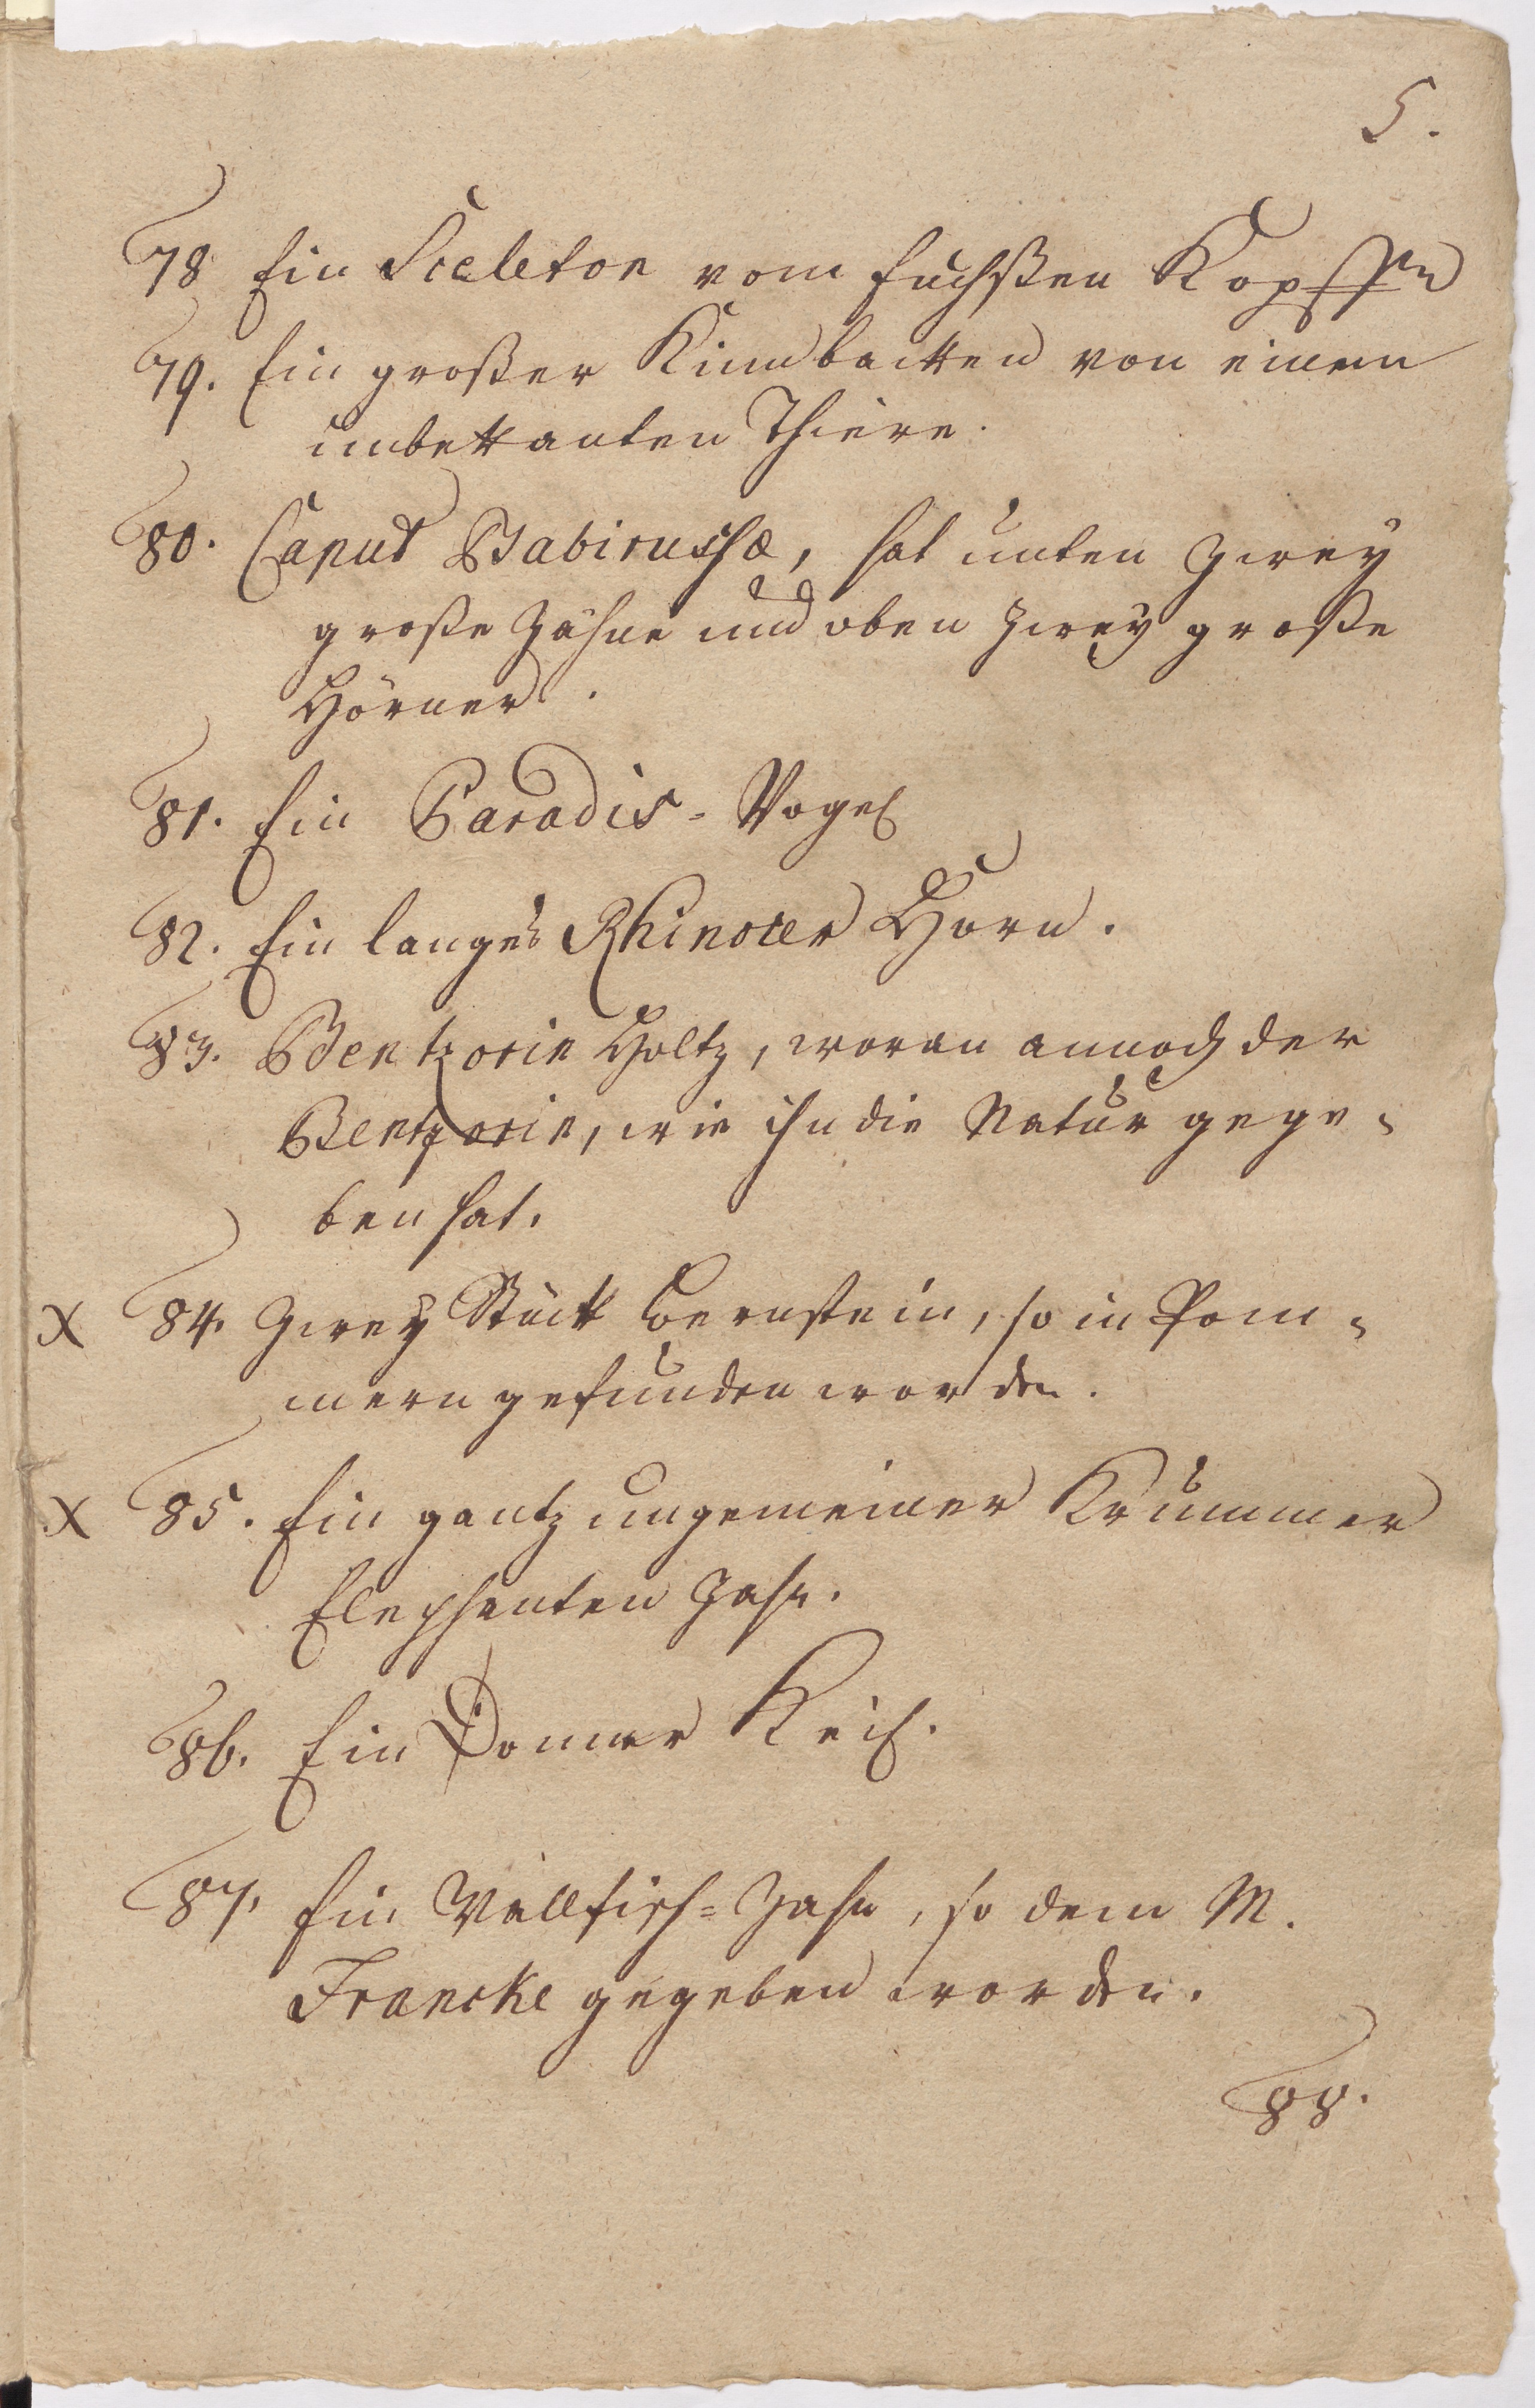 5.
78 Ein Sceleton vom fuchßen Kopffen
79. Ein großer Kinnbacken von einem
unbekanten Thiere.
80. Caput Babirussæ, hat unten zwey
große Zähne und oben zwey große
Hörner.
81. Ein Paradis-Vogel
82. Ein langes Rhinocer Horn.
83. Bentzorin Holtz, woran annoch der
Bentzorin, wie ihn die Natur gege-
ben hat.
X 84. Zwey Stück Bernstein, so in Pom-
mern gefunden worden.
X 85. Ein gantz ungemeiner Krummer
Elephanten Zahn.
86. Ein Donner Keil.
87. Ein Wallfisch-Zahn, so dem M.
Francke gegeben worden.
88.